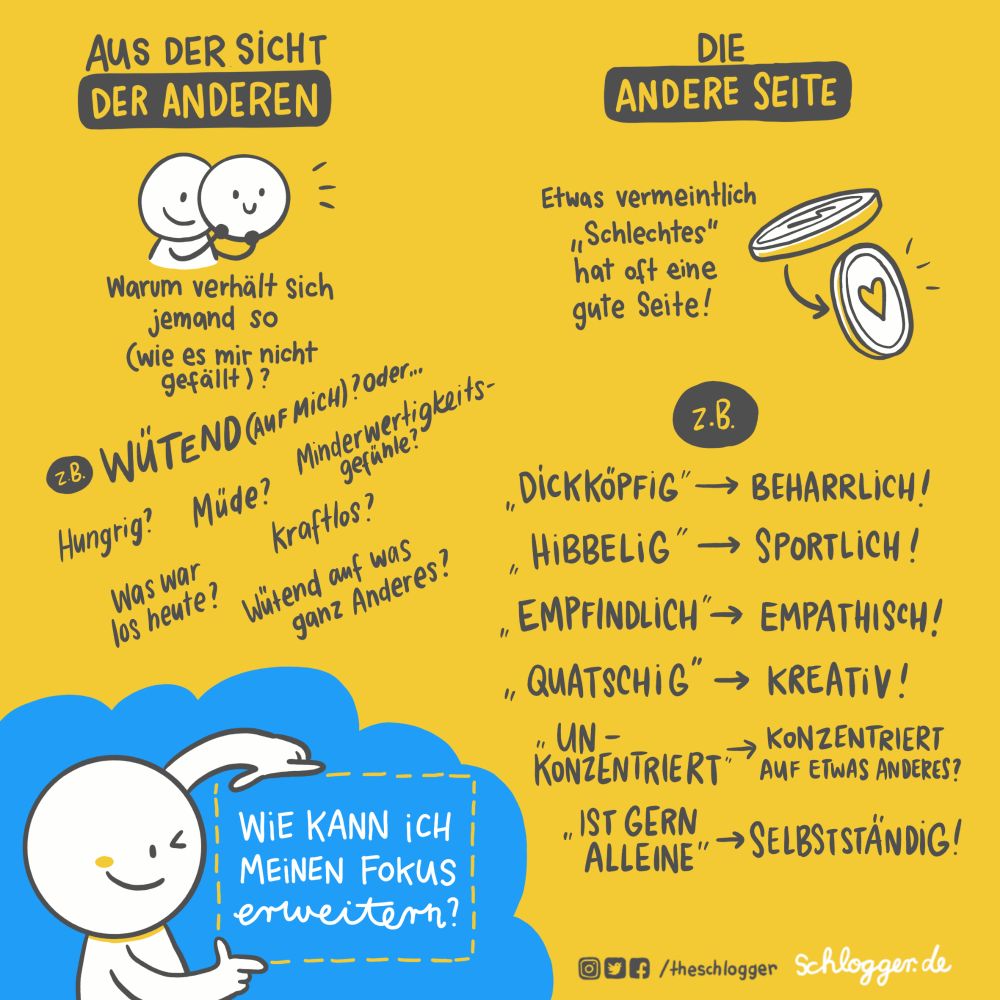 AUS DER SICHT
DER ANDEREN
Warum verhält sich
jemand so
(wie es mir nicht
gefällt)?
z.B. WÜTEND (AUF MICH)? oder...
Minderwertigkeits-
gefühle?
Hungrig?
Müde?
Kraftlos?
Was war
los heute?
Wütend auf was
ganz Anderes?
WIE KANN ICH
MEINEN FOKUS
erweitern?
DIE
ANDERE SEITE
Etwas vermeintlich
„Schlechtes"
hat oft eine
gute Seite!
z.B.
„DICKKÖPFIG" → BEHARRLICH!
„HIBBELIG" → SPORTLICH!
„EMPFINDLICH" → EMPATHISCH!
„QUATSCHIG" → KREATIV!
„UN-
KONZENTRIERT" → KONZENTRIERT
AUF ETWAS ANDERES?
„IST GERN
ALLEINE" → SELBSTSTÄNDIG!
/theschlogger
Schlogger.de